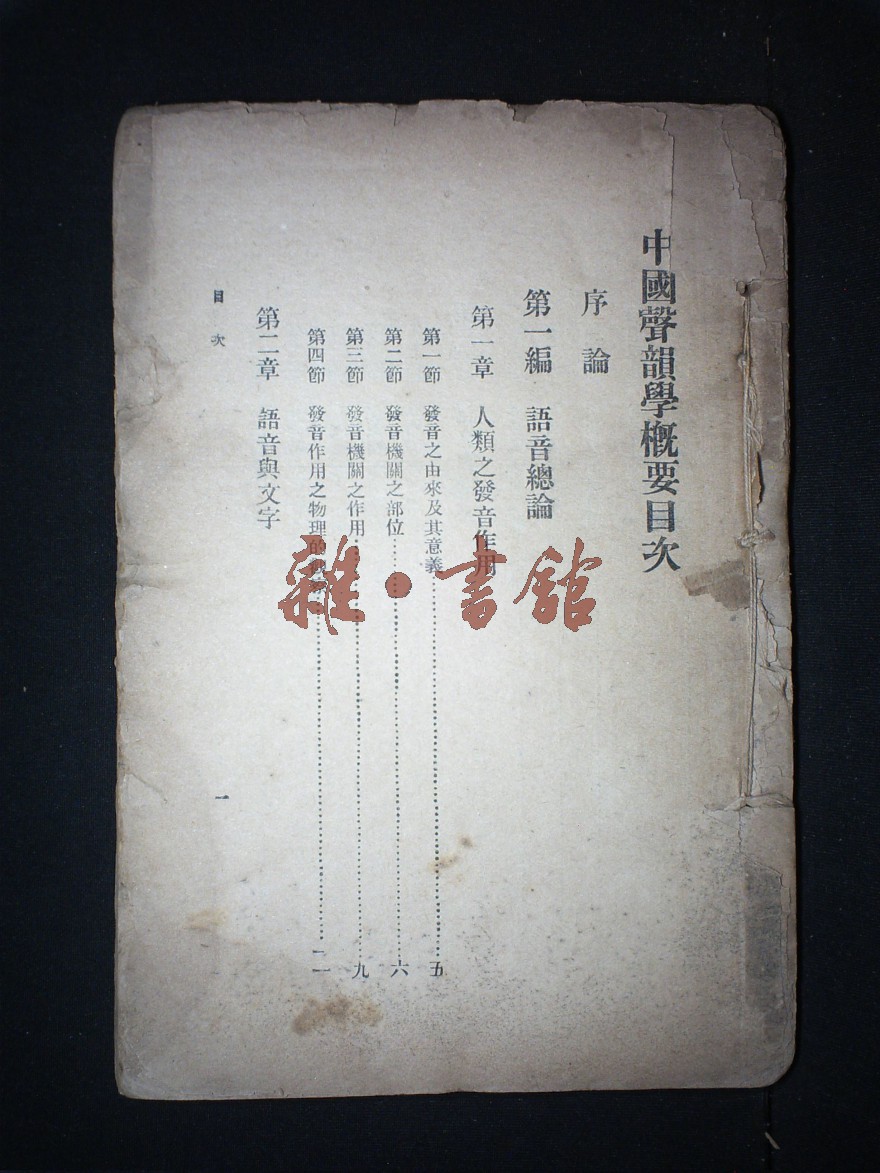 中國聲韻學槪要目次
序論
第一編　語音總論
第一章　人類之發音作用
第一節　發音之由來及其意義……五
第二節　發音機關之部位……六
第三節　發音機關之作用……九
第四節　發音作用之物理的……二一
第二章　語音與文字
目次
一
雜·書館